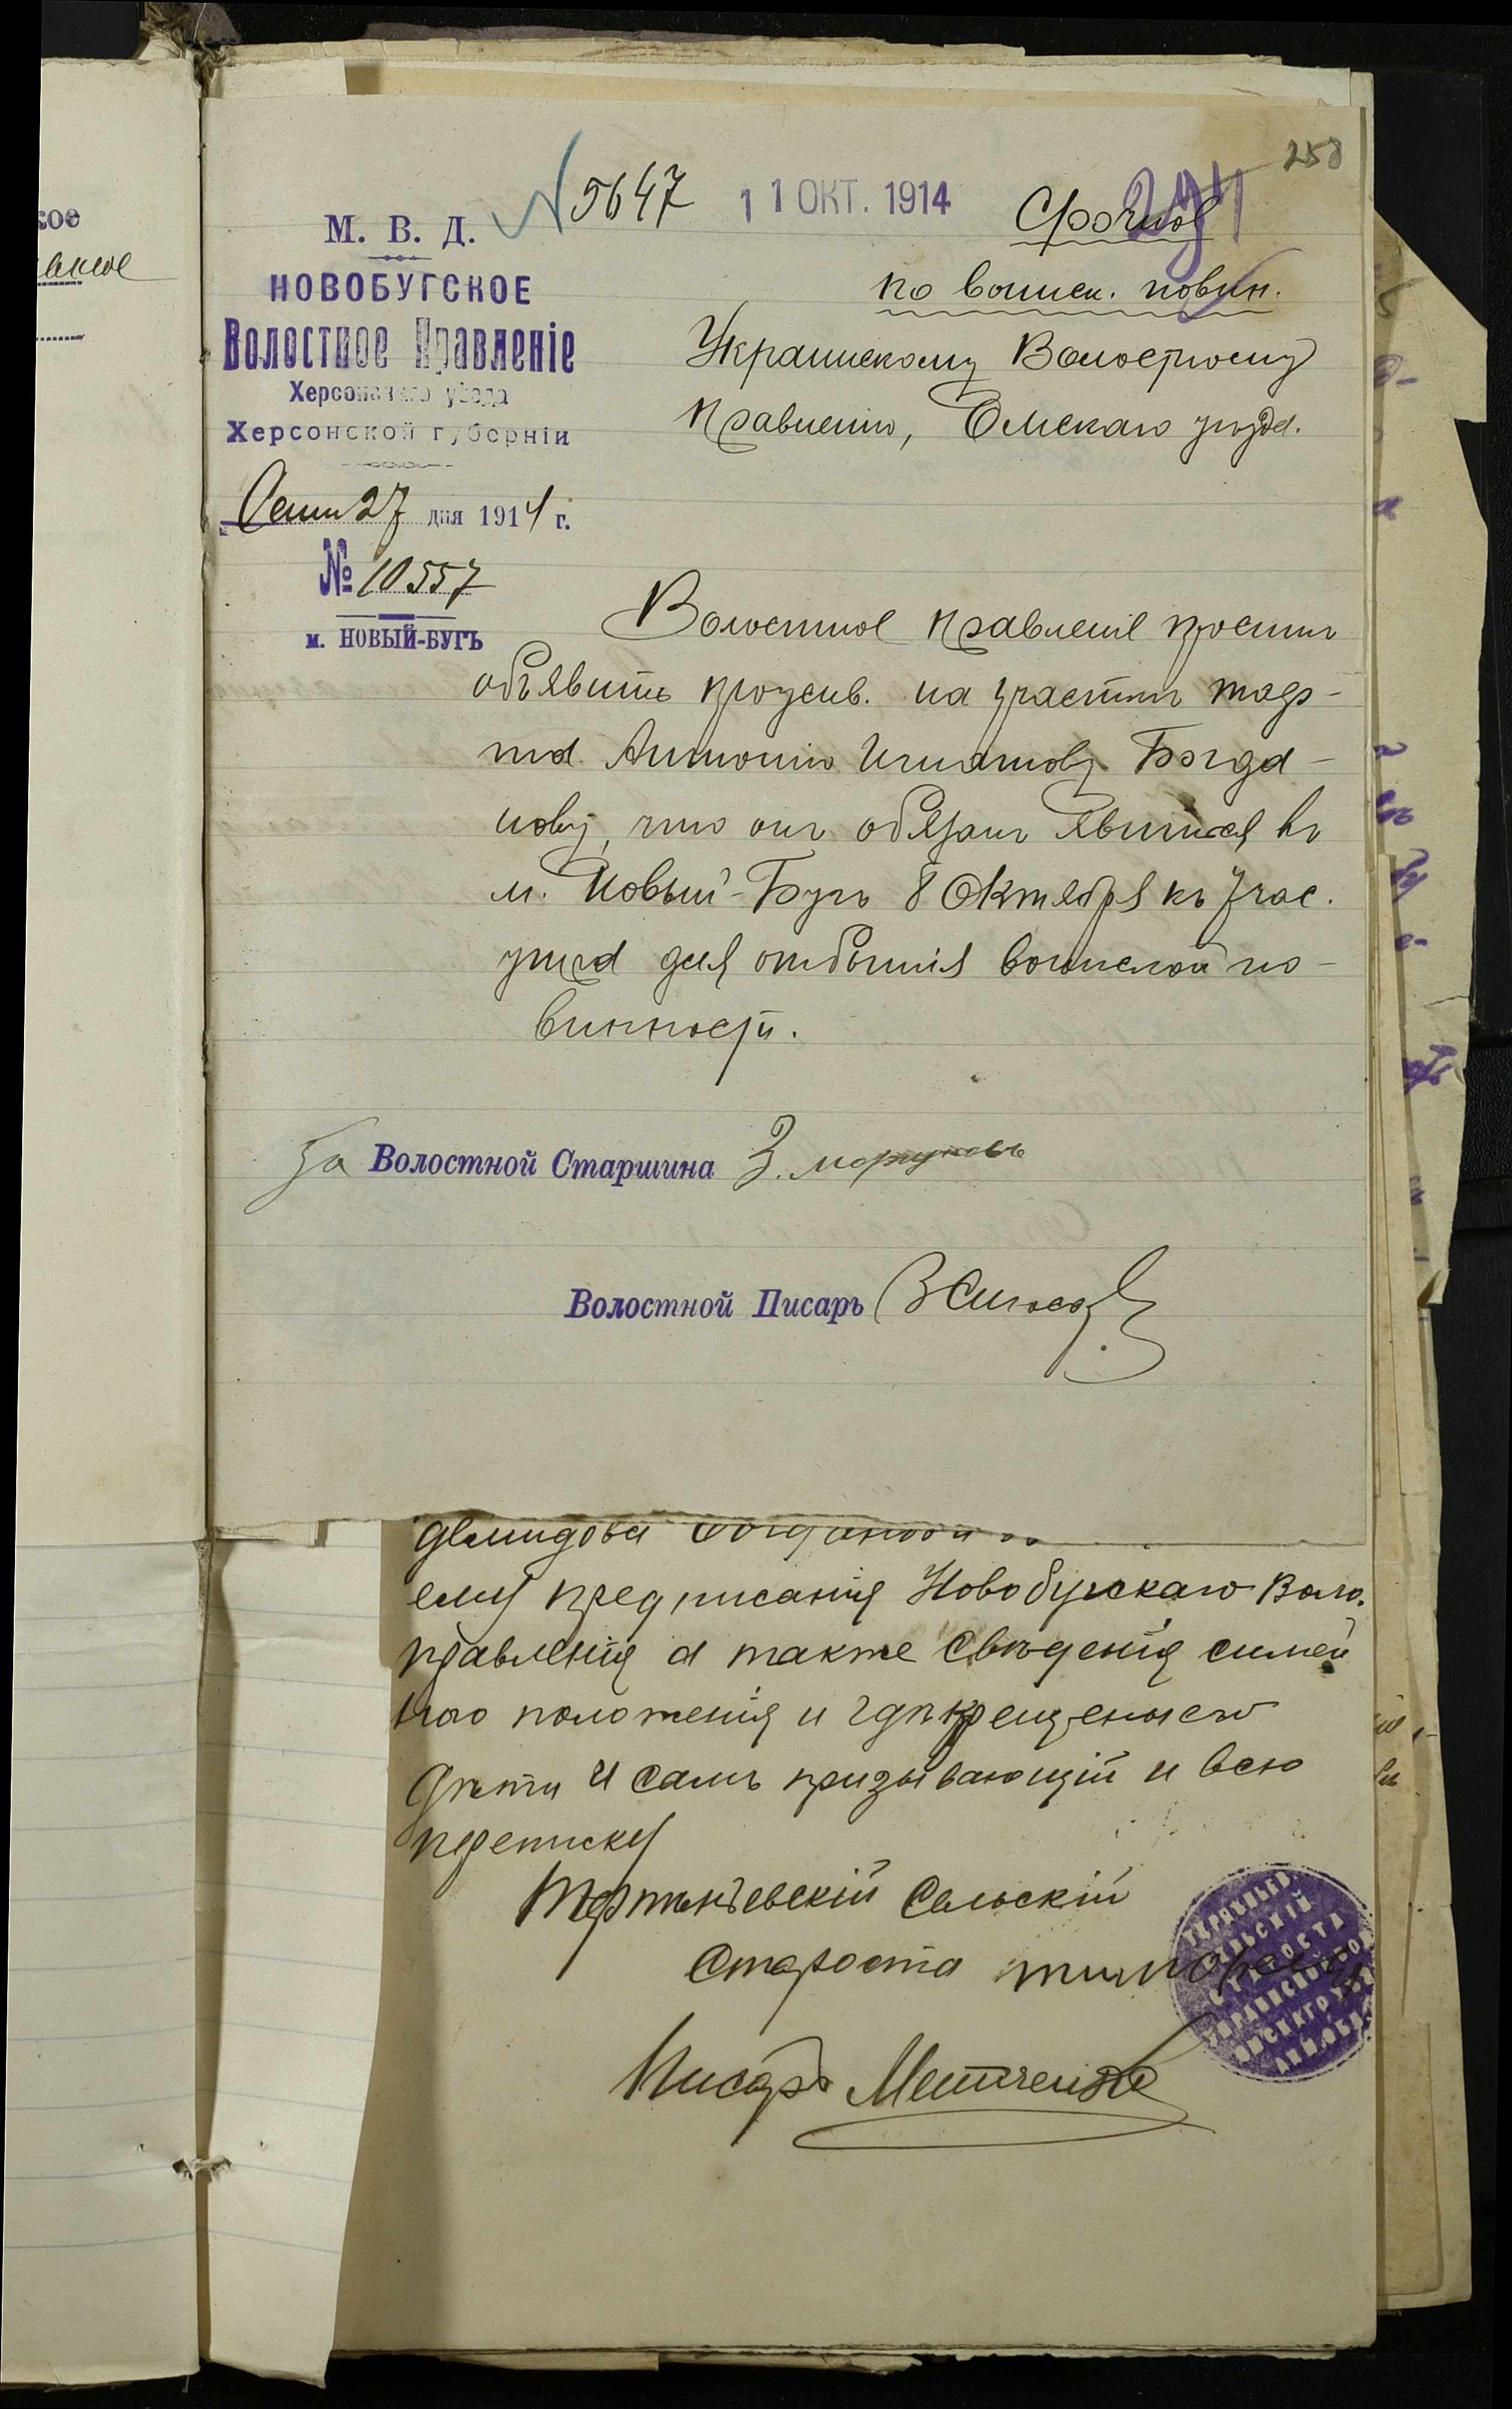 258
№ 5647 11 ОКТ. 1914
294
Срочное
по воинск. повин.
М. В. Д.
НОВОБУГСКОЕ
Волостное Правленіе
Херсонскаго уѣзда
Херсонской губерніи
Сент 27 дня 1914 г.
№ 10557
м. НОВЫЙ-БУГЪ
Украинскому Волостному
Правленію, Омскаго уѣзда.
Волостное Правленіе проситъ
объявить прожив. на участкѣ
Антонію Игнатову Богда-
нову, что онъ обязанъ явиться въ
м. Новый-Бугъ 8 Октября къ 7 час.
утра для отбытія воинской по-
винности.
За Волостной Старшина З.
Волостной Писарь
Демидова
ему предписанія Новобугскаго Воло.
правленія а также свѣденія семей
наго положенія и гдѣ крещены его
дѣти и самъ призывающій и всю
переписку
Сельскій
Староста
Писарь
кое